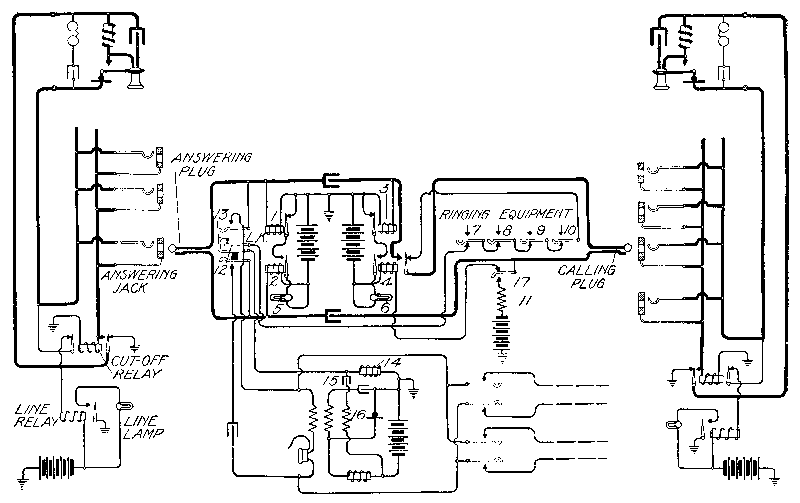 ANSWERING
PLUG
ANSWERING
JACK
CUT-OFF
RELAY
LINE
RELAY
LINE
LAMP
13
12
1
2
3
4
5
6
RINGING EQUIPMENT
7 8 9 10
CALLING
PLUG
17
11
14
15
16